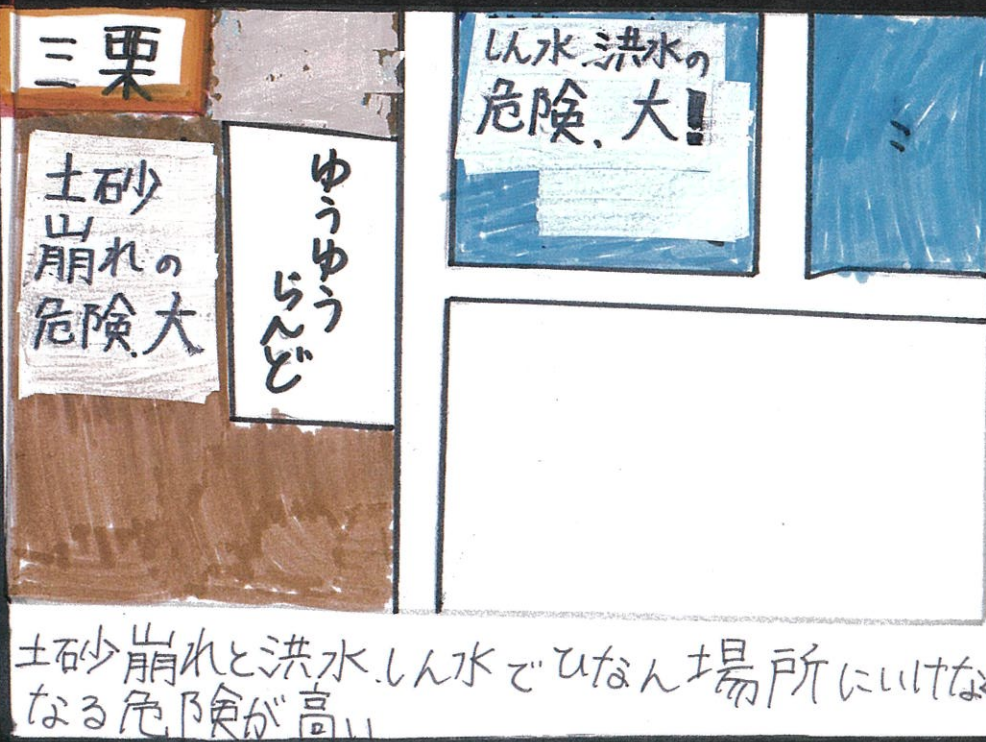 三栗
土砂
崩れの
危険.大
ゆうゆう
らんど
しん水.洪水の
危険.大!
土砂崩れと洪水.しん水でひなん場所にいけな
なる危険が高い